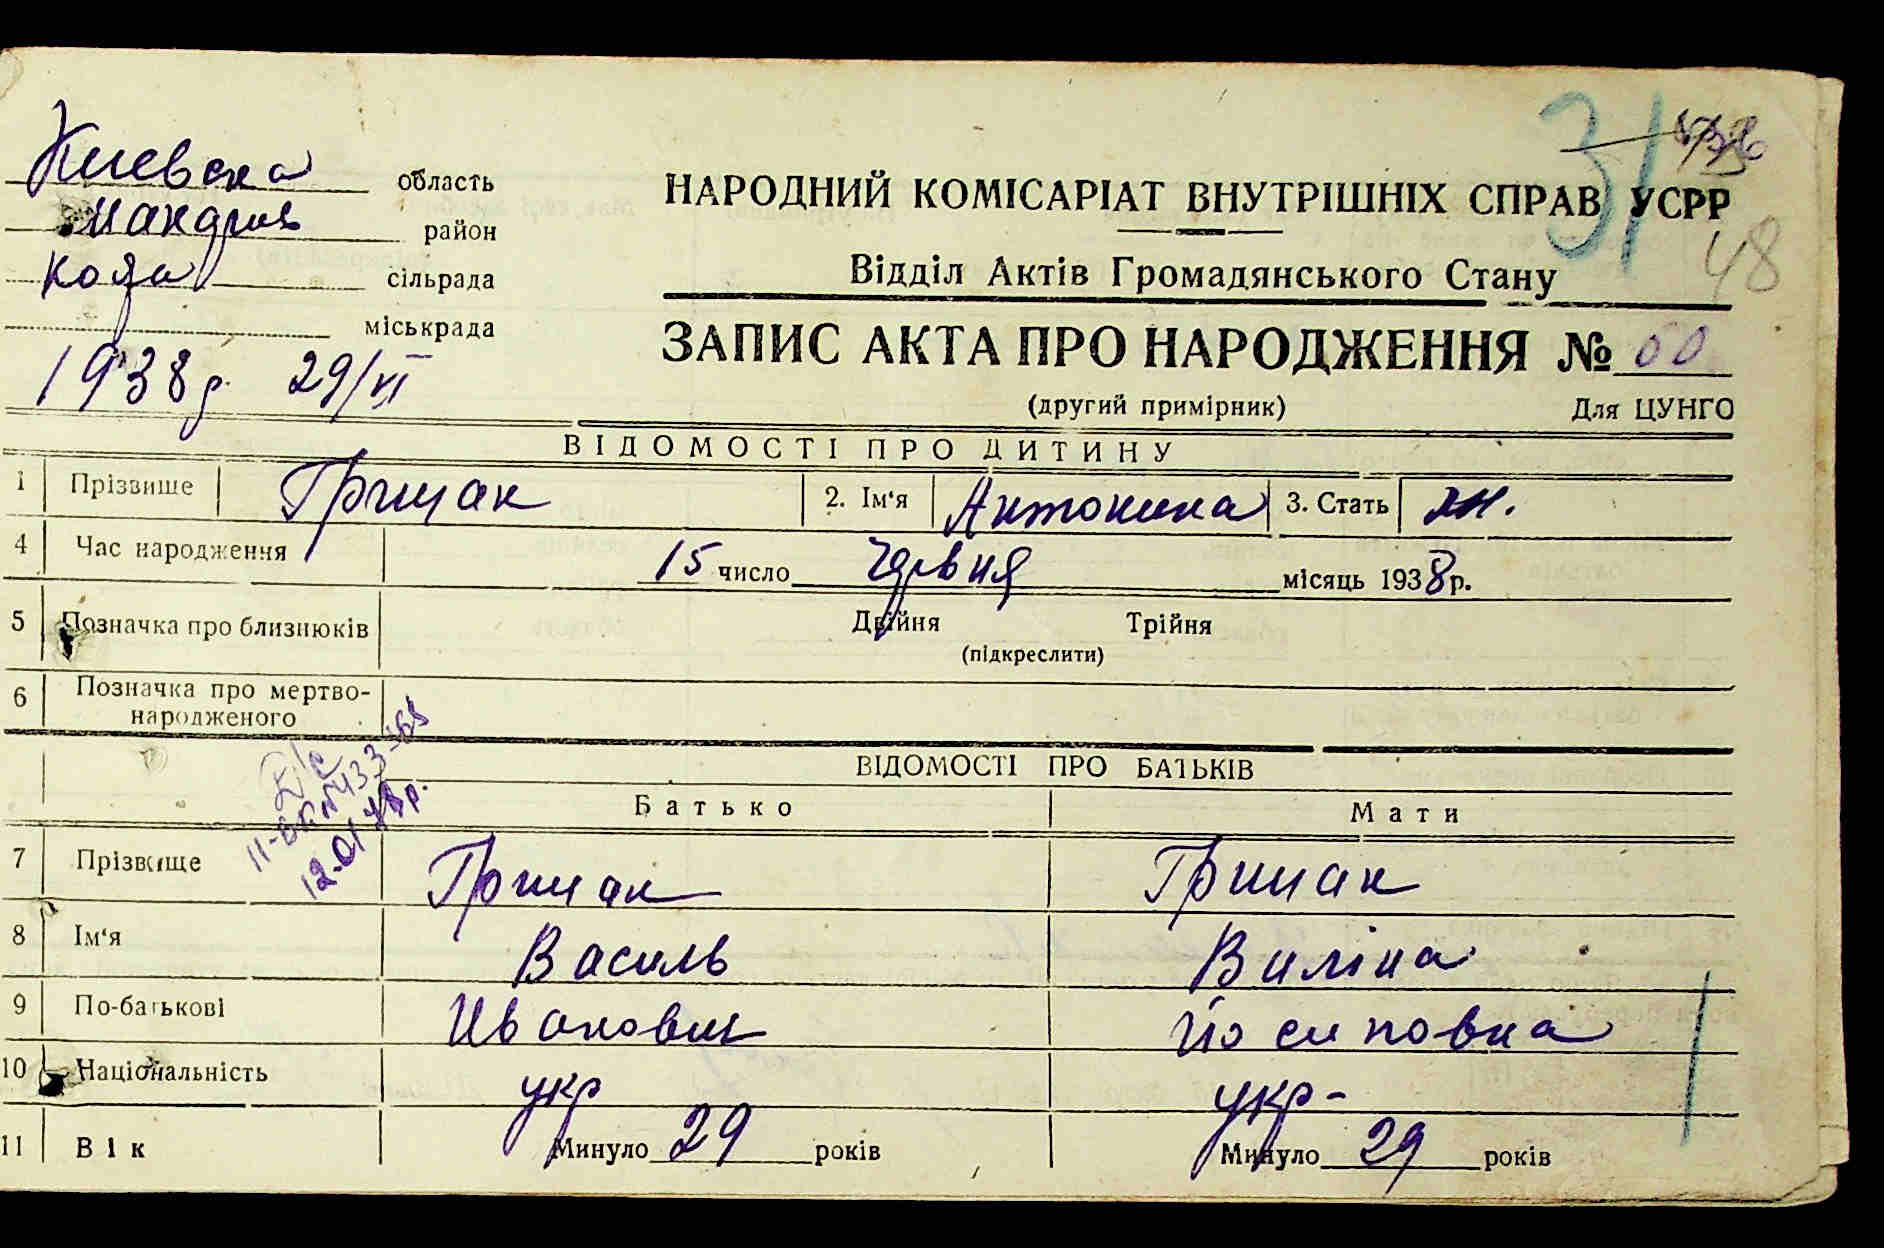 Киевска область
Макарів район
сільрада
міськрада
31
48
НАРОДНИЙ КОМІСАРІАТ ВНУТРІШНІХ СПРАВ УСРР
Відділ Актів Громадянського Стану
ЗАПИС АКТА ПРО НАРОДЖЕННЯ № 60
(другий примірник) Для ЦУНГО
1938 р. 29/VI
ВІДОМОСТІ ПРО ДИТИНУ
1 Прізвище Грицак 2. Ім'я Антонина 3. Стать ж.
4 Час народження 15 число червня місяць 1938 р.
5 Позначка про близнюків Двійня Трійня
(підкреслити)
6 Позначка про мертво-
народженого
ВІДОМОСТІ ПРО БАТЬКІВ
Батько Мати
12.01
7 Прізвище Грицак Грицак
8 Ім'я Василь Виліна
9 По-батькові Иванович Йосиповна
10 Національність укр укр-
11 Вік Минуло 29 років Минуло 29 років